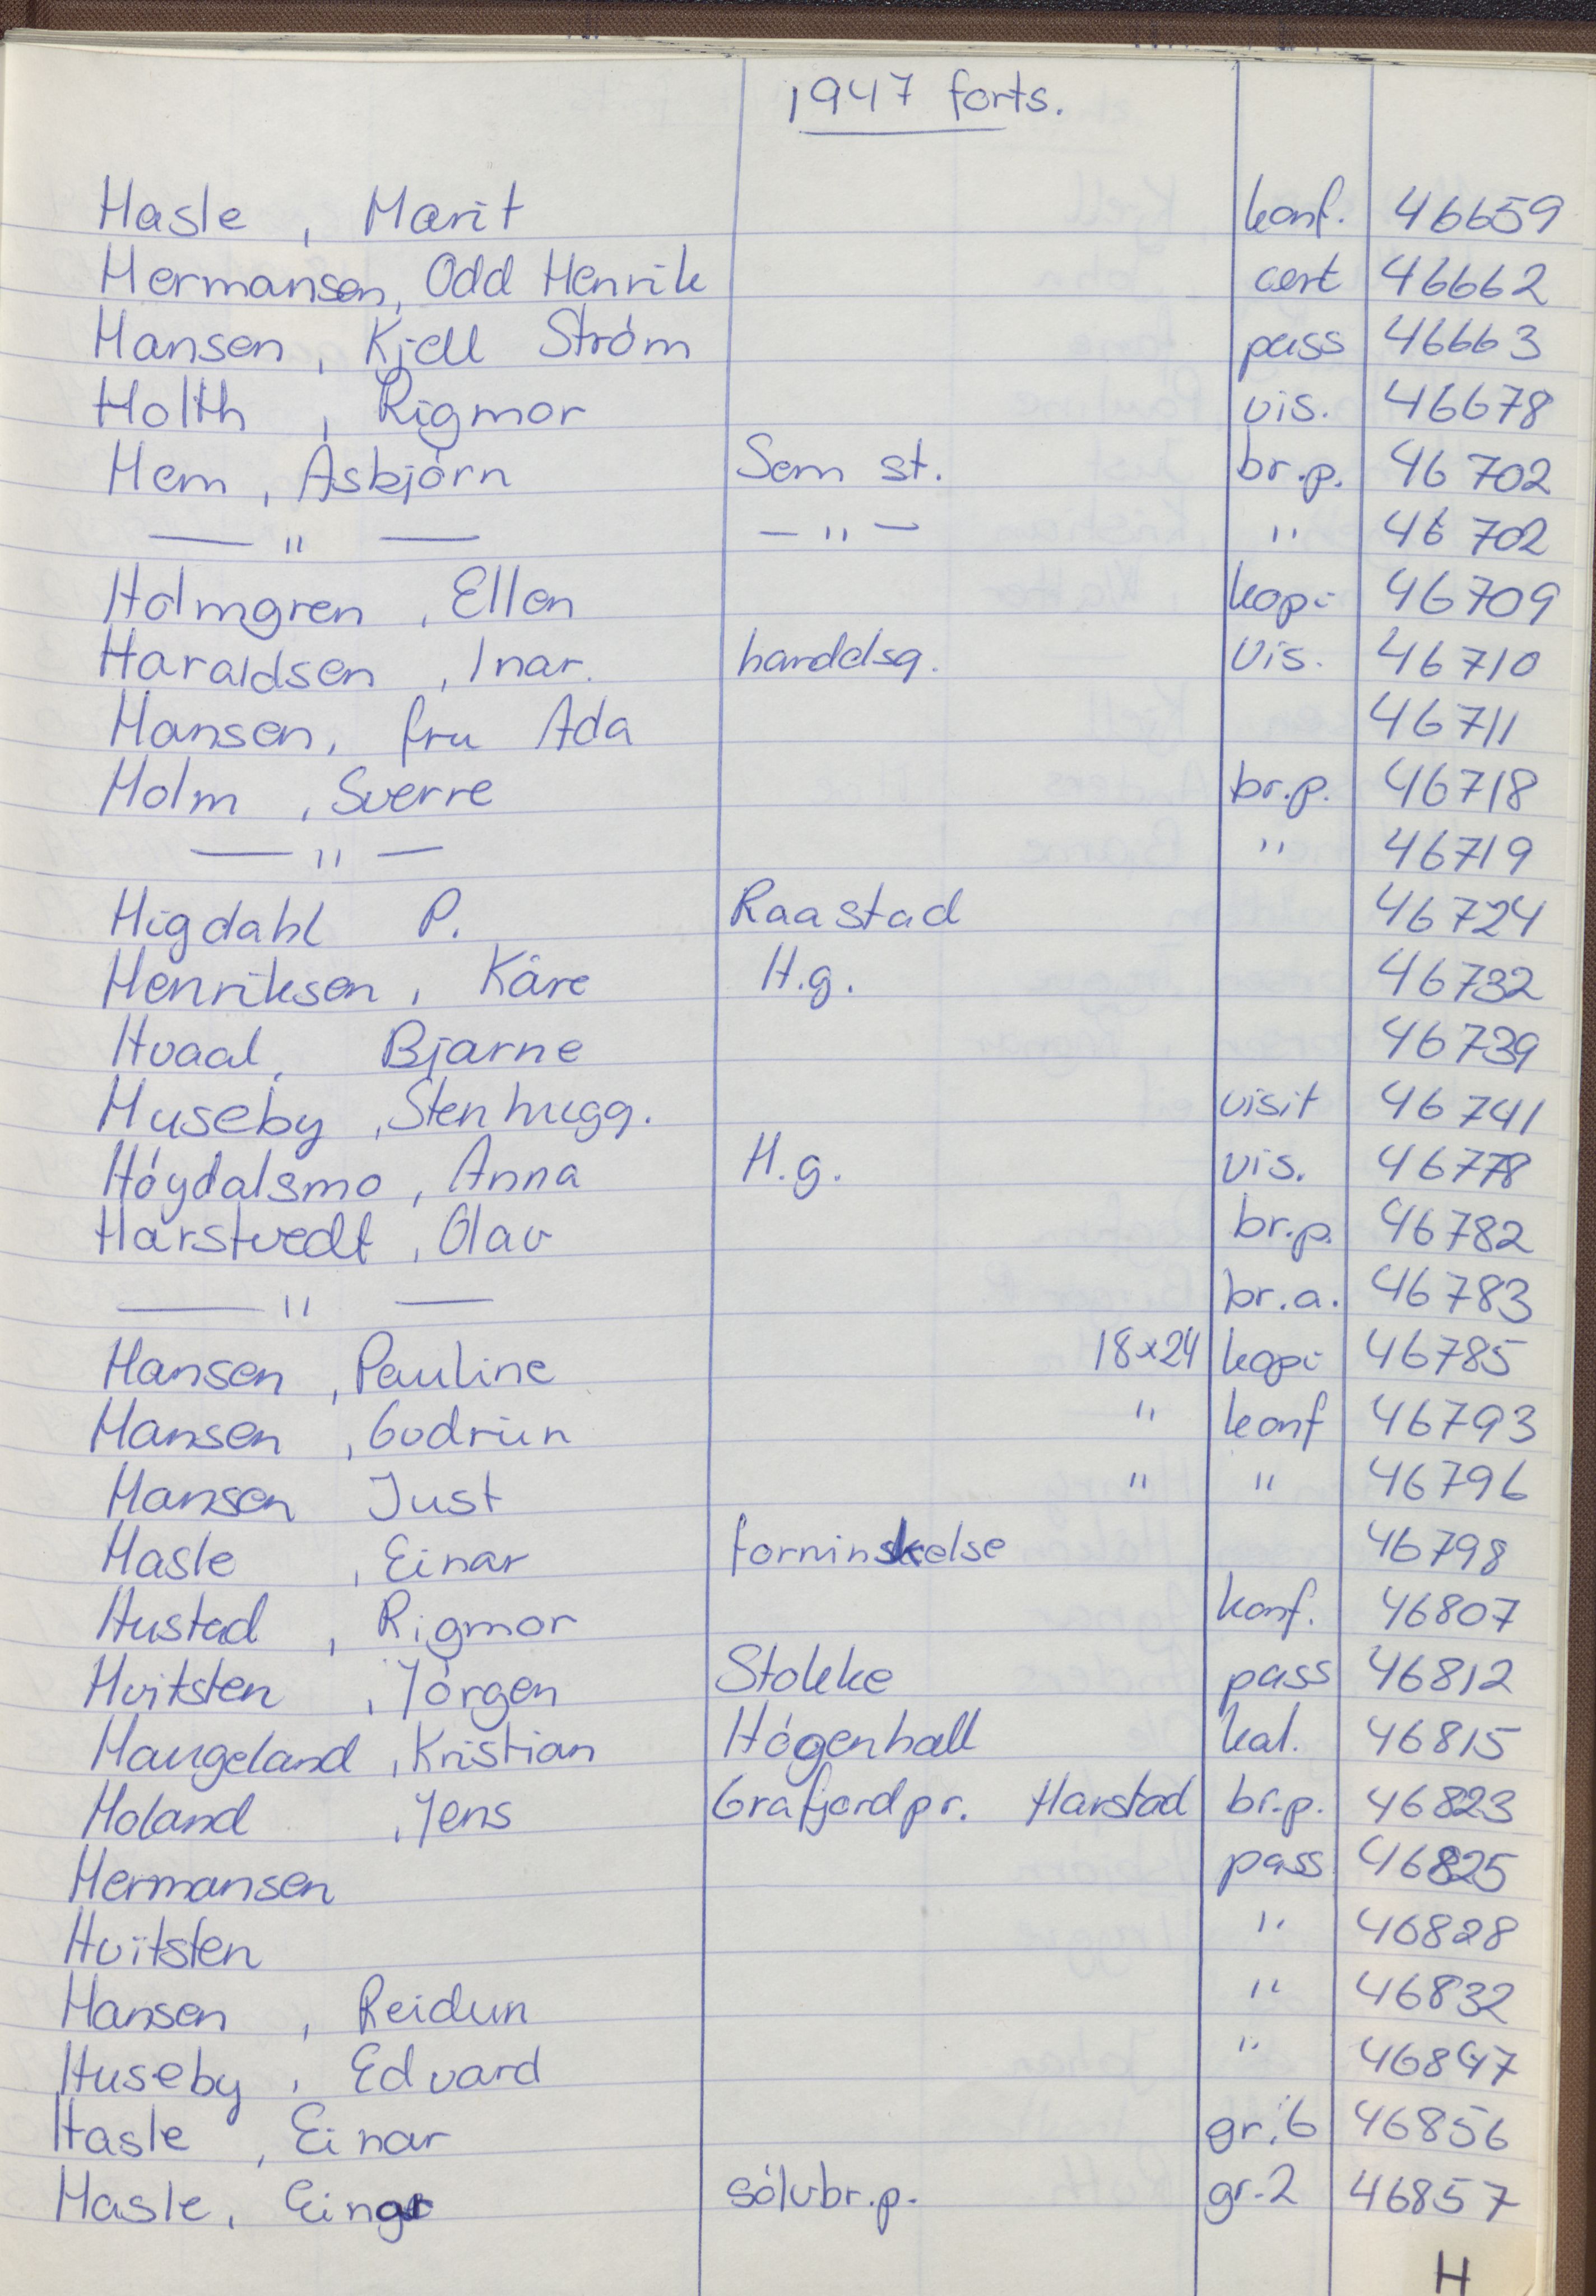 1947 forts.
Hasle, Marit konf. 46659
Hermansen, Odd Henrik cert 46662
Hansen, Kjell Ström pass 46663
Holth, Rigmor vis. 46678
Hem, Asbjörn Sem st. br.p. 46702
— " — — " — " 46702
Holmgren, Ellen kopi 46709
Haraldsen, Inar. handelsg. Vis. 46710
Hansen, fru Ada 46711
Holm, Sverre br.p. 46718
— " — " 46719
Higdahl P. Raastad 46724
Henriksen, Kåre H.g. 46732
Hvaal, Bjarne 46739
Huseby, Stenhugg. visit 46741
Höydalsmo, Anna H.g. vis. 46778
Harstvedt, Olav br.p. 46782
— " — br.a. 46783
Hansen, Pauline 18x24 kopi 46785
Hansen, Gudrun " konf 46793
Hansen Just " " 46796
Hasle, Einar forminskelse 46798
Hustad, Rigmor konf. 46807
Hvitsten, Jörgen Stokke pass 46812
Haugeland, Kristian Högenhall kal. 46815
Holand, Jens Grafjord pr. Harstad br.p. 46823
Hermansen pass 46825
Hvitsten " 46828
Hansen, Reidun " 46832
Huseby, Edvard " 46847
Hasle, Einar gr. 6 46856
Hasle, Einar sölvbr.p. gr. 2 46857
H